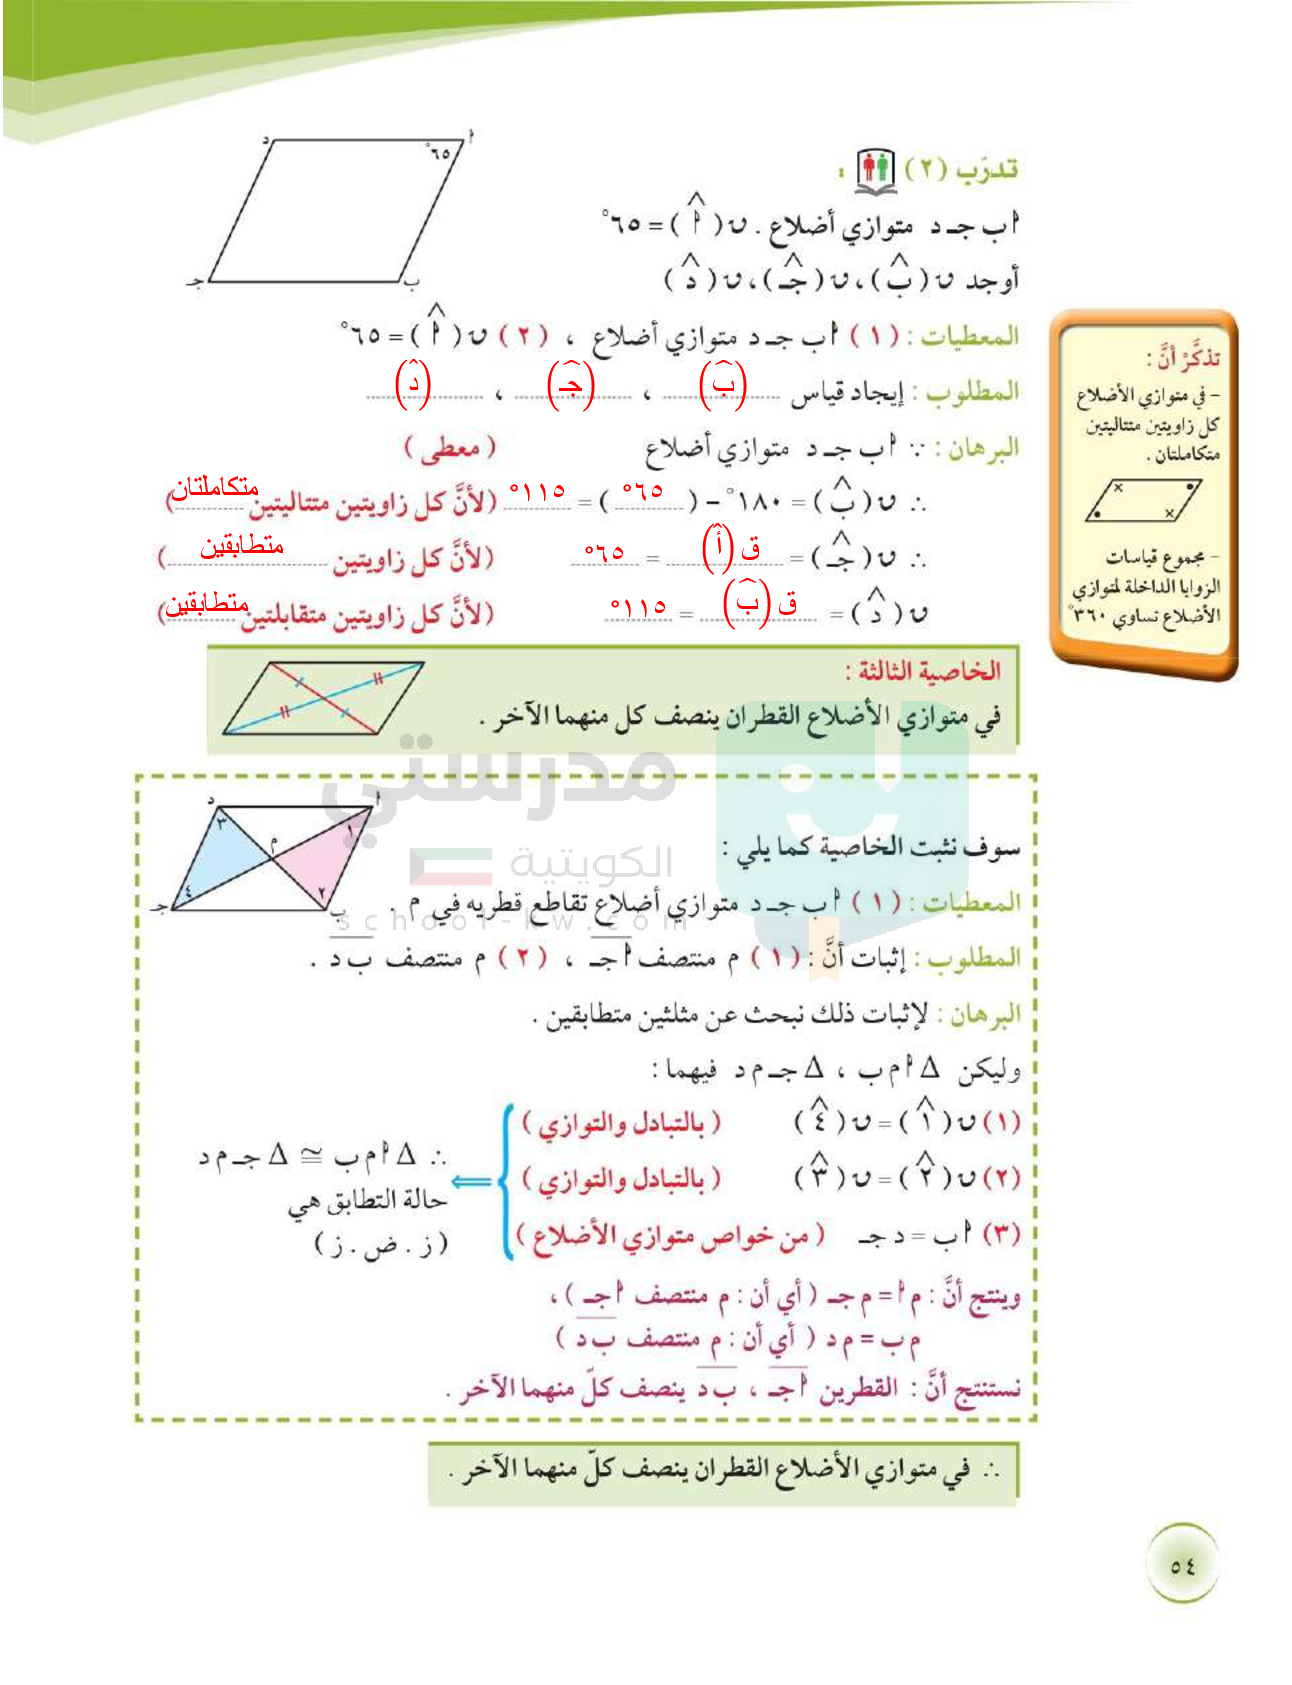 تدرّب (٢) :
أ ب جـ د متوازي أضلاع . ن(أ^) = ٦٥°
أوجد ن(ب^) ، ن(جـ^) ، ن(د^)
د
أ
٦٥°
جـ
ب
المعطيات : (١) أ ب جـ د متوازي أضلاع ، (٢) ن(أ^) = ٦٥°
المطلوب : إيجاد قياس (ب^) ، (جـ^) ، (د^)
البرهان : ∵ أ ب جـ د متوازي أضلاع (معطى)
∴ ن(ب^) = ١٨٠° − (٦٥°) = ١١٥° (لأنَّ كل زاويتين متتاليتين متكاملتان)
∴ ن(جـ^) = ق(أ^) = ٦٥° (لأنَّ كل زاويتين متطابقين)
ن(د^) = ق(ب^) = ١١٥° (لأنَّ كل زاويتين متقابلتين متطابقين)
تذكَّرْ أنَّ :
- في متوازي الأضلاع
كل زاويتين متتاليتين
متكاملتان .
- مجموع قياسات
الزوايا الداخلة لمتوازي
الأضلاع تساوي ٣٦٠°
الخاصية الثالثة :
في متوازي الأضلاع القطران ينصف كل منهما الآخر .
مدرستي
الكويتية
school-kw.com
د
أ
٣
١
م
٤
٢
جـ
ب
سوف نثبت الخاصية كما يلي :
المعطيات : (١) أ ب جـ د متوازي أضلاع تقاطع قطريه في م .
المطلوب : إثبات أنَّ : (١) م منتصف أجـ ، (٢) م منتصف ب د .
البرهان : لإثبات ذلك نبحث عن مثلثين متطابقين .
وليكن Δ أ م ب ، Δ جـ م د فيهما :
(١) ن(١^) = ن(٤^) (بالتبادل والتوازي)
(٢) ن(٢^) = ن(٣^) (بالتبادل والتوازي)
(٣) أ ب = د جـ (من خواص متوازي الأضلاع)
∴ Δ أ م ب ≅ Δ جـ م د
حالة التطابق هي
(ز . ض . ز)
وينتج أنَّ : م أ = م جـ (أي أن : م منتصف أجـ) ،
م ب = م د (أي أن : م منتصف ب د)
نستنتج أنَّ : القطرين أجـ ، ب د ينصف كلّ منهما الآخر .
∴ في متوازي الأضلاع القطران ينصف كلّ منهما الآخر .
٥٤